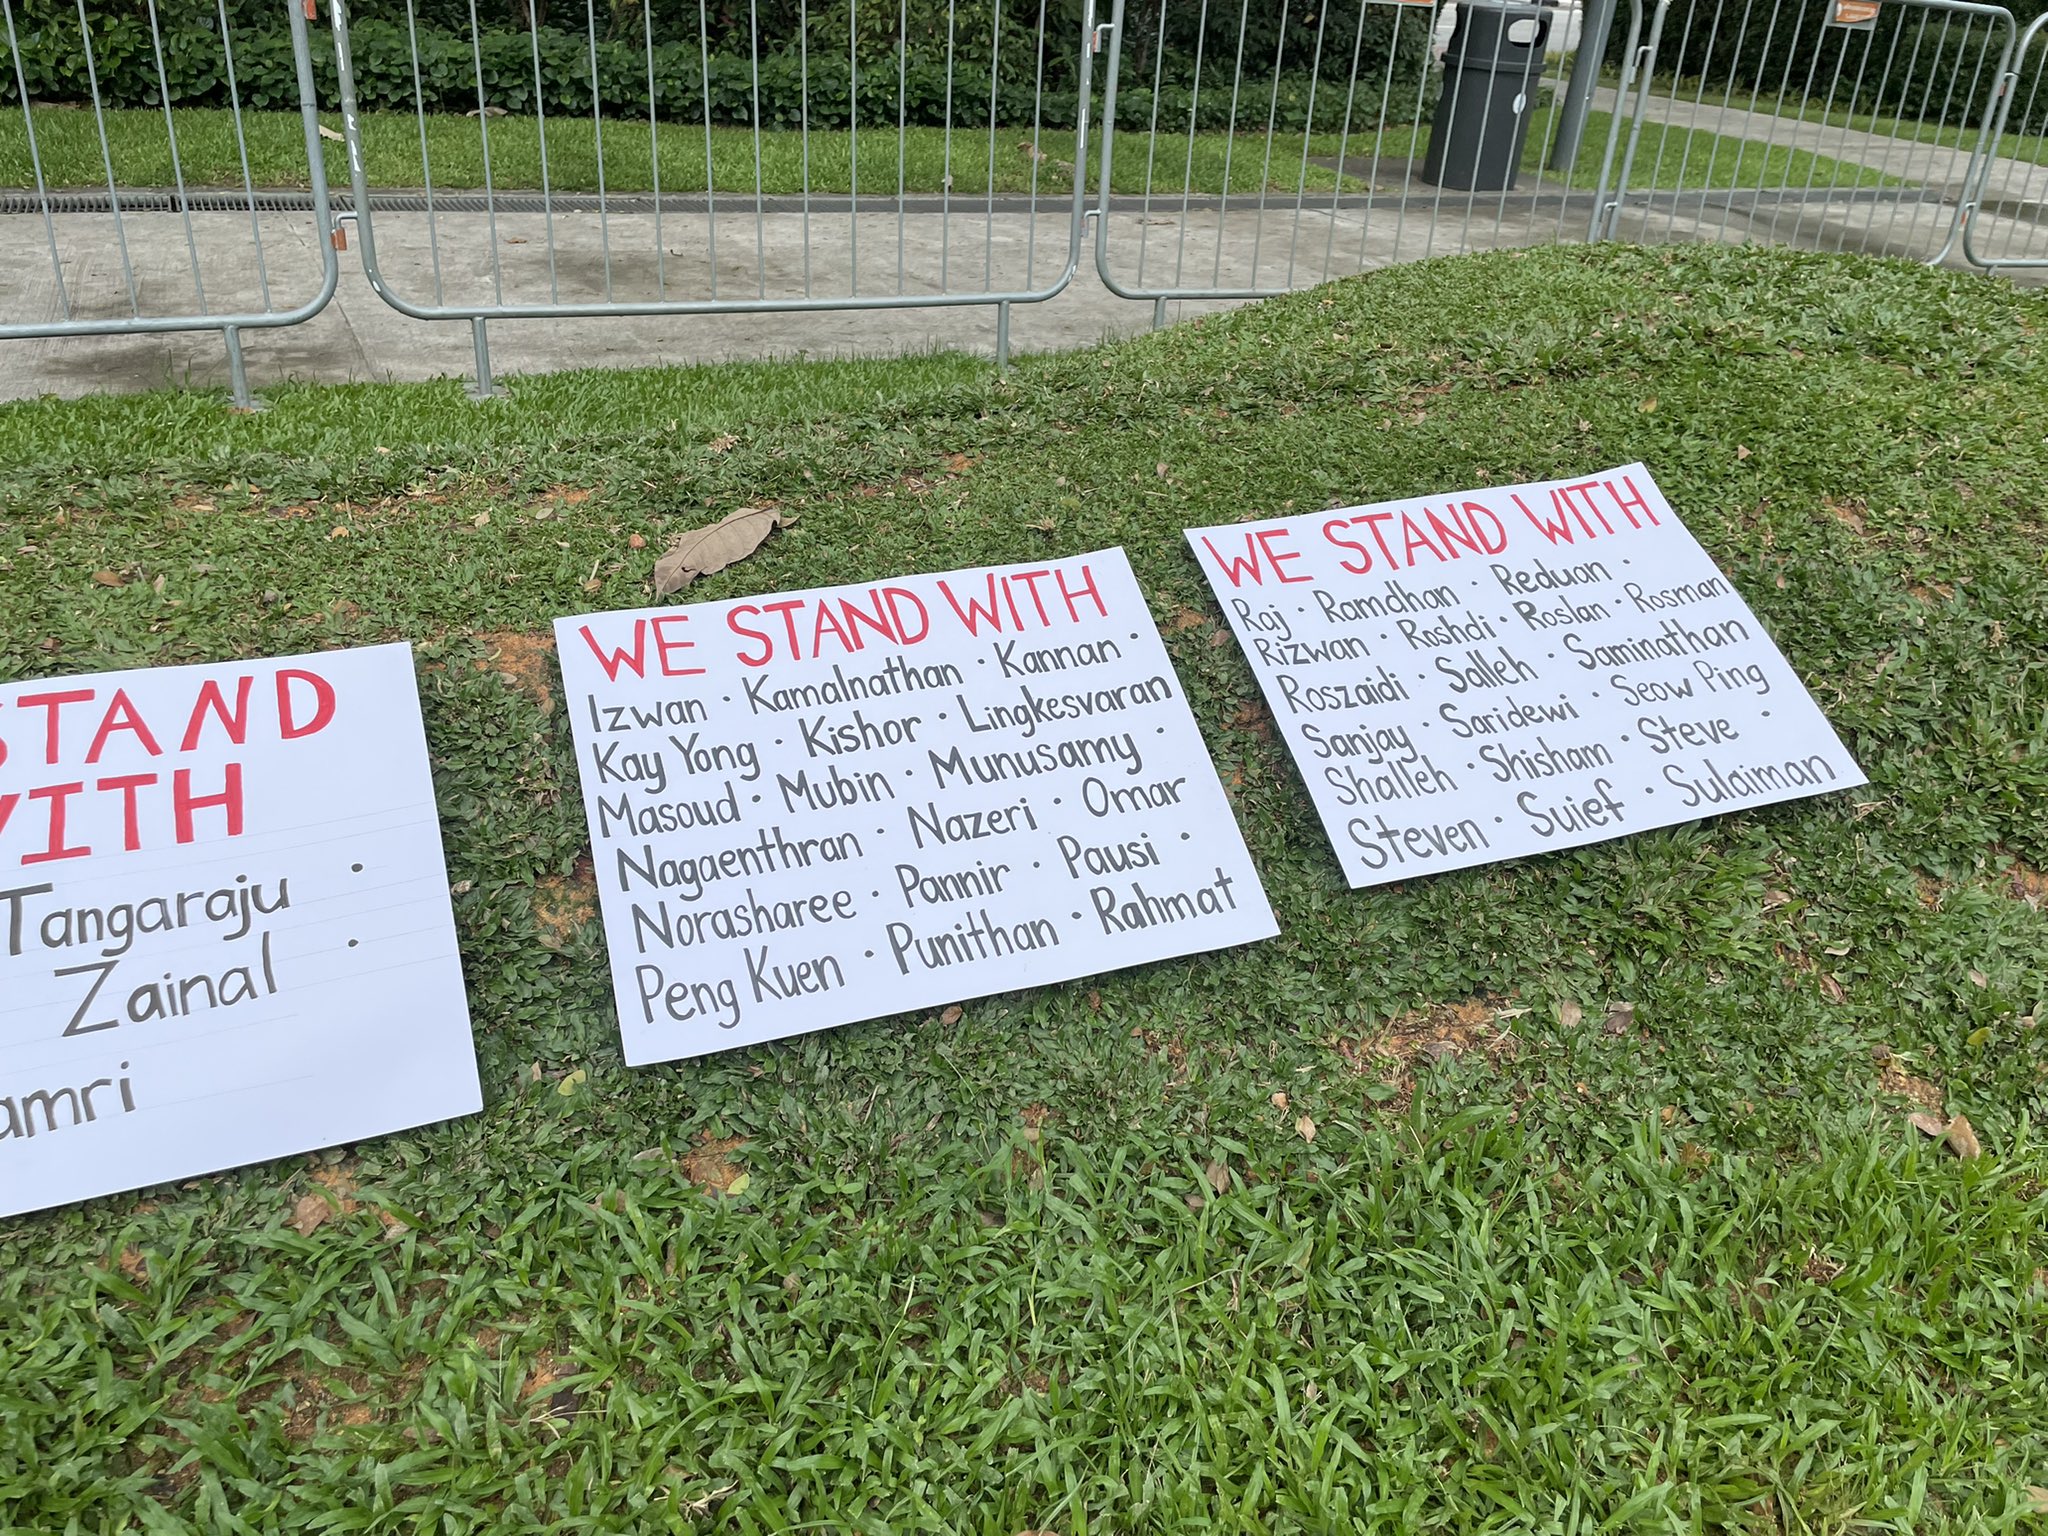 STAND
WITH
Tangaraju ·
Zainal ·
amri
WE STAND WITH
Izwan · Kamalnathan · Kannan ·
Kay Yong · Kishor · Lingkesvaran
Masoud · Mubin · Munusamy ·
Nagaenthran · Nazeri · Omar
Norasharee · Pannir · Pausi ·
Peng Kuen · Punithan · Rahmat
WE STAND WITH
Raj · Ramdhan · Reduan ·
Rizwan · Roshdi · Roslan · Rosman
Roszaidi · Salleh · Saminathan
Sanjay · Saridewi · Seow Ping
Shalleh · Shisham · Steve ·
Steven · Suief · Sulaiman